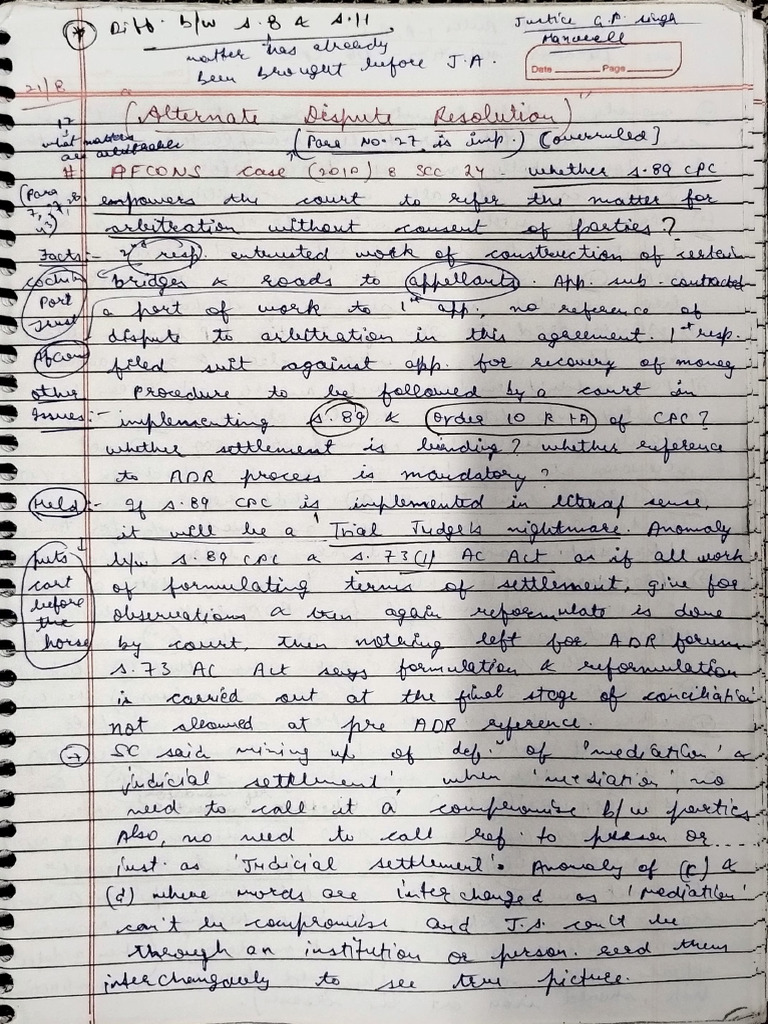 * Diff. b/w s.8 & s.11
matter has already
been brought before J.A.
Justice G.P. Singh
Maxwell
Date Page
21/8
"(Alternate Dispute Resolution)"
17
what matters
are arbitrable
(Para No. 27 is imp.) [overruled]
# AFCONS case (2010) 8 SCC 24. whether s.89 CPC
(Para
empowers the court to refer the matter for
arbitration without consent of parties?
Facts:- 2nd resp. entrusted work of construction of certain
Cochin
Port
Trust
bridges & roads to appellants. App. sub. contracted
a part of work to 1st app., no reference of
dispute to arbitration in this agreement. 1st resp.
Afcons
filed suit against app. for recovery of money
other Procedure to be followed by a court in
Issues:- implementing s.89 & Order 10 R 1A of CPC?
whether settlement is binding? whether reference
to ADR process is mandatory?
Held:- If s.89 CPC is implemented in literal sense,
it will be a 'Trial Judge's nightmare. Anomaly
puts
cart
before
the
horse
b/w s.89 CPC & s.73(1) AC Act as if all work
of formulating terms of settlement, give for
observations & then again reformulate is done
by court, then nothing left for ADR forum
s.73 AC Act says formulation & reformulation
is carried out at the final stage of conciliation
not allowed at pre ADR reference.
→ SC said mixing up of def.n of 'mediation' &
judicial settlement', when 'mediation', no
need to call it a compromise b/w parties
Also, no need to call ref. to person or
inst. as 'Judicial settlement'. Anomaly of (c) &
(d) where words are interchanged as 'mediation'
can't be compromise and J.S. can't be
through an institution or person. read them
interchangeably to see true picture.